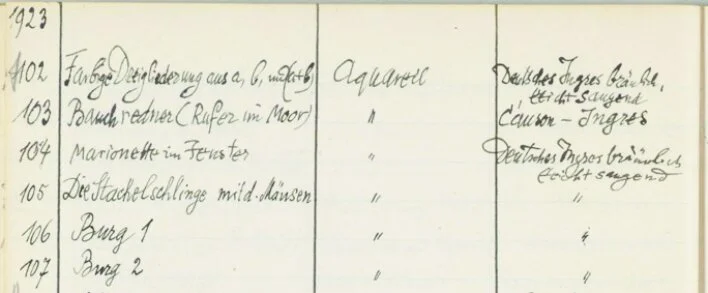 1923
102 Farbige Dreigliederung aus a, b, und (a+b) Aquarell Deutsches Ingres bräunl.,
leicht saugend
103 Bauchredner (Rufer im Moor) " Canson - Ingres
104 Marionette im Fenster " Deutsches Ingres bräunlich
leicht saugend
105 Die Stachelschlinge mit d. Mäusen " "
106 Burg 1 " "
107 Burg 2 " "